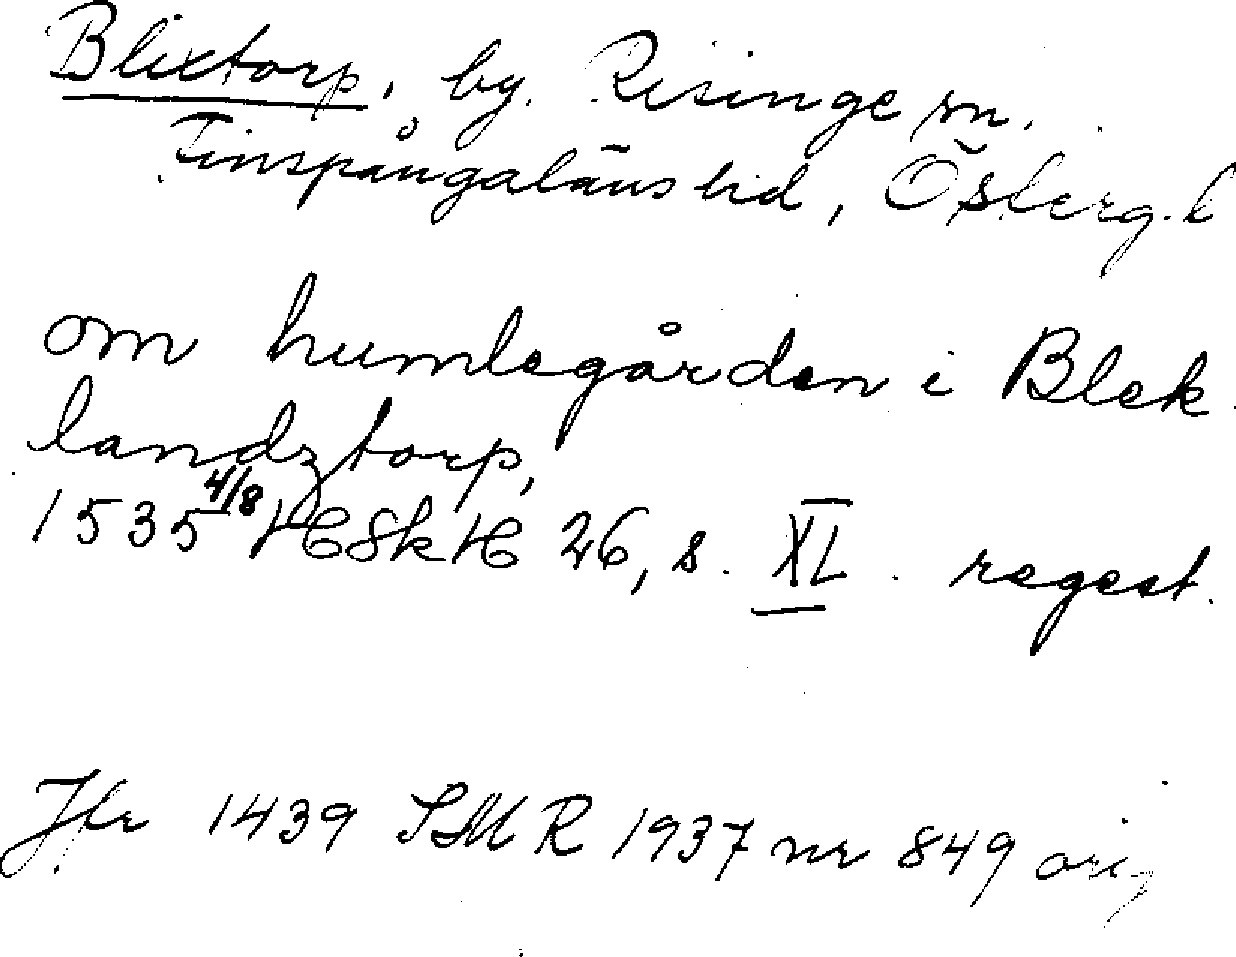 Blixtorp, by. Risinge sn.
Finspångaläns hd, Österg. l
om humlegården i Blek
landztorp,
1535 4/8 HSkH 26, s. XL. regest.
Jfr 1439 SMR 1937 nr 849 orig